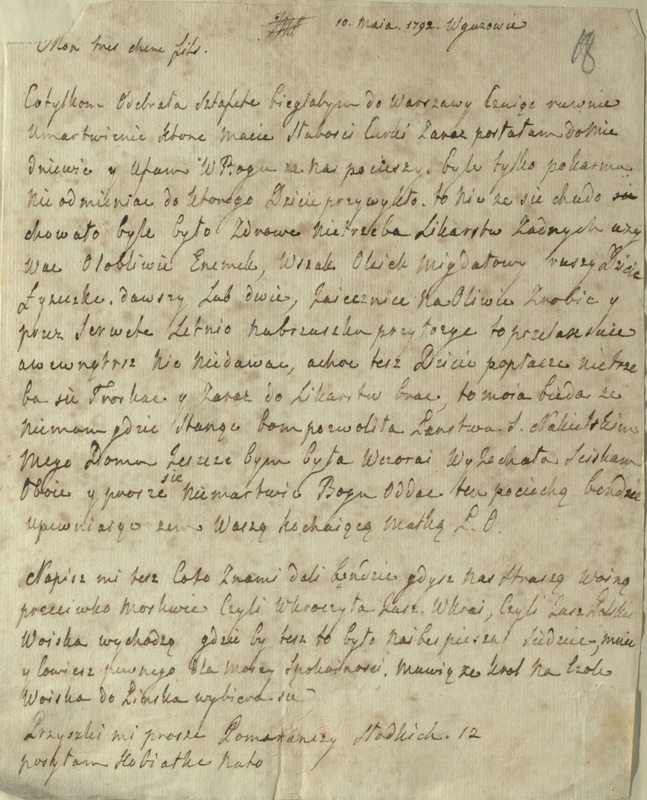 10. Maia. 1792. Wguzowie
18
Mon tres chere fils.
Cotylkom Odebrała Sztafete biegłabym do Warszawy Czuiąc ruwnie
Umartwienie ktore macie Słabosci Curki Zaraz posłałam doNie
dniewic y Ufam W Bogu ze nas pocieszy. byle tylko pokarmu
Nie odmieniac do ktorego Dziecie przywykło. to nic ze sie chudo
chowało byle było Zdrowe Nietrzeba Likarstw Zadnych uzy
wac Osobliwie Enemek, Wszak Oleiek Migdałowy ruszy Dziecie
Łyzeczke. dawszy Lub dwie, Jaiecznice Na Oliwie Zrobic y
przez Serwete Letnio nabrzuszku przyłozyc to przelaxuie
awewnątrz Nic Niedawac, achoc tesz Dziecie popłacze nietrze
ba sie Troskac y Zaraz do Likarstw brac, to moia bieda ze
Niemam gdzie Stanąc bom pozwoliła Panstwu S. Nakielskim
Mego Domu Jeszcze bym była Wczorai Wyiechała Sciskam
Oboie y prosze sie Niemartwic Bogu Oddac ten pociechą bendzie
upewniaiąc zem Waszą kochaiącą Matką L. O.
Napisz mi tesz Coto Znami dali będzie gdysz nas straszą Woiną
przeciwko Moskwie Czyli Wkroczyła Jusz. Wkrai, Czyli Jusz Polskie
Woiska wychodzą gdzie by tesz to było naibespieczni Siedziec, mnie
y Lowicz pewnego dla mocy Spokoinosci. Muwią ze krol na Czele
Woiska do Pinska wybiera sie
Przyszli mi prosze Pomaranczy Słodkich. 12
posyłam Kobiałke nato